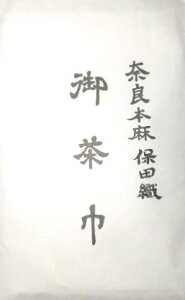 奈良本麻 保田織
御茶巾